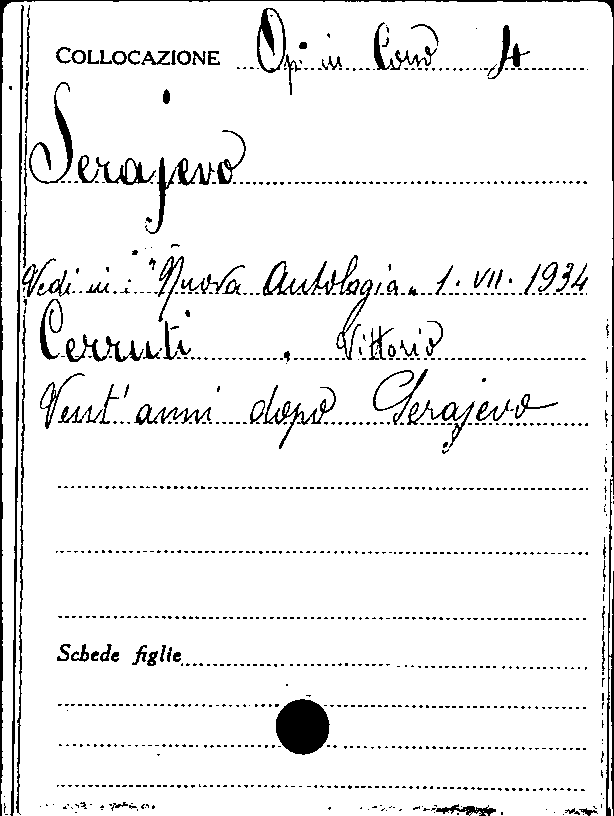 COLLOCAZIONE Op. in Cons
Serajevo
Vedi in: "Nuova Antologia" 1. VII. 1934
Cerruti, Vittorio
Vent'anni dopo Serajevo
Schede figlie